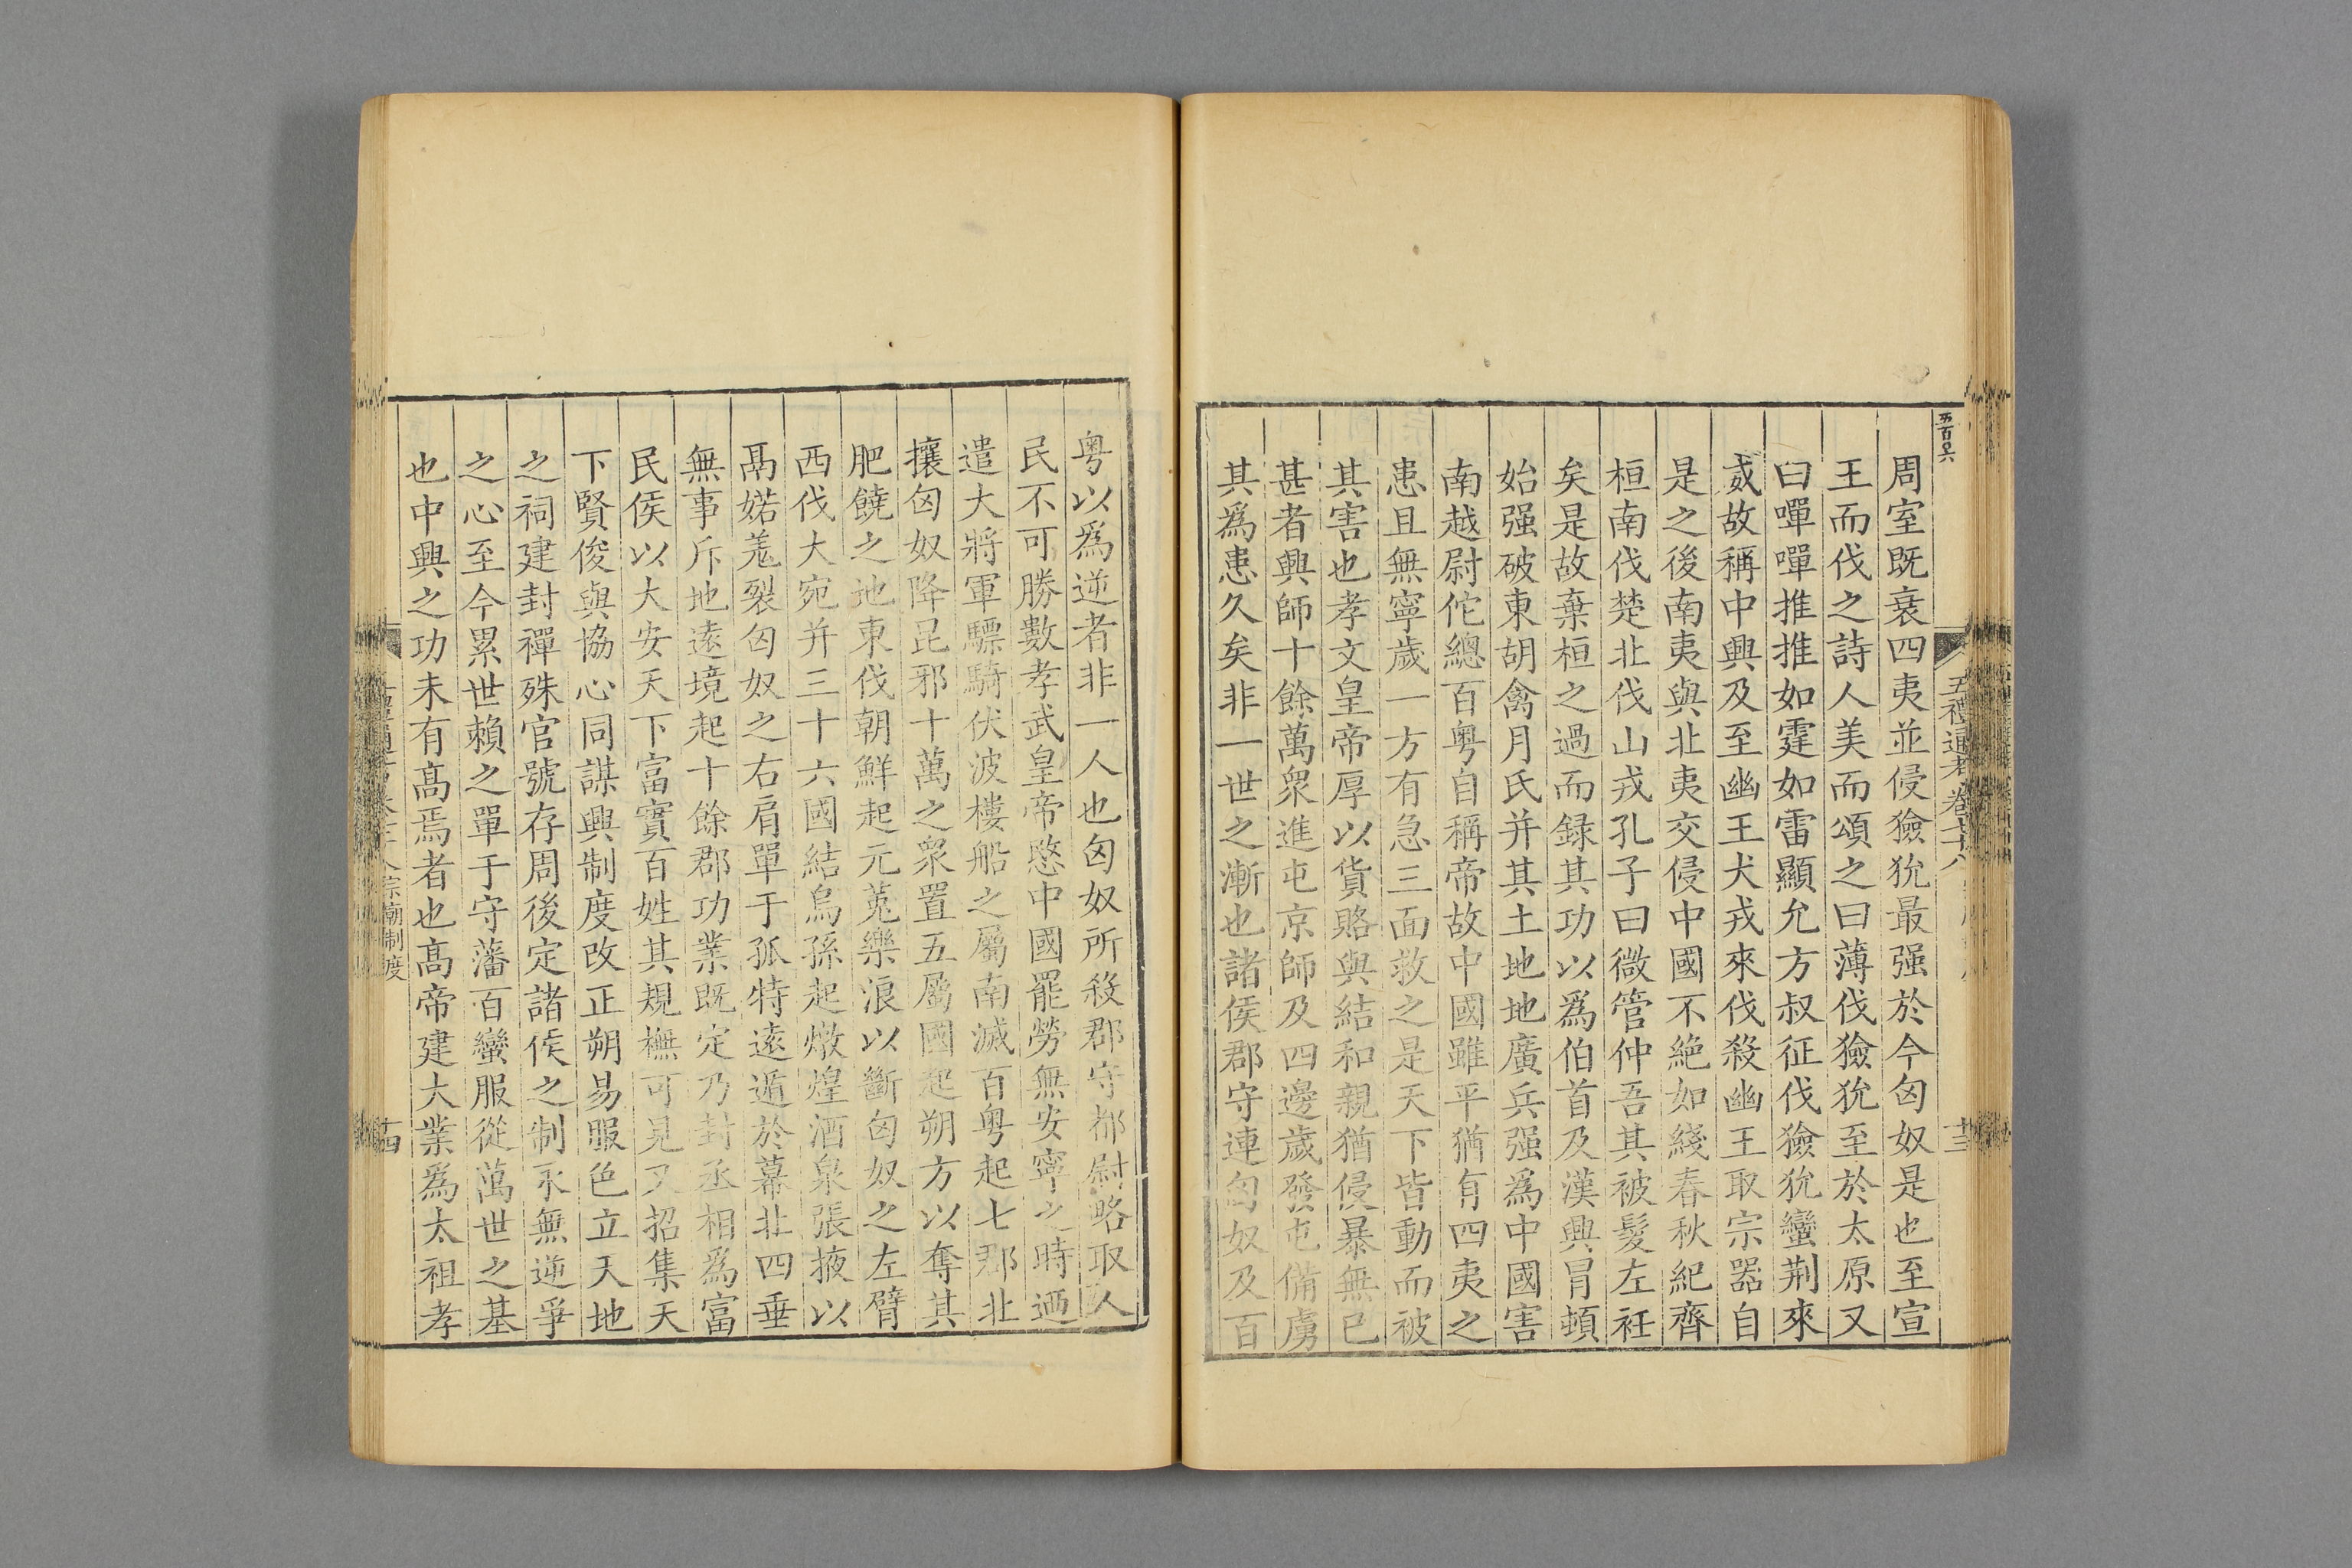 五百四六
五禮通考 卷 十三
周室既衰四夷並侵獫狁最强於今匈奴是也至宣
王而伐之詩人美而頌之曰薄伐獫狁至於太原又
曰嘽嘽推推如霆如雷顯允方叔征伐獫狁蠻荆來
威故稱中興及至幽王犬戎來伐殺幽王取宗器自
是之後南夷與北夷交侵中國不絶如綫春秋紀齊
桓南伐楚北伐山戎孔子曰微管仲吾其被髮左衽
矣是故棄桓之過而録其功以爲伯首及漢興冒頓
始强破東胡禽月氏并其土地地廣兵强爲中國害
南越尉佗總百粤自稱帝故中國雖平猶有四夷之
患且無寧歲一方有急三面救之是天下皆動而被
其害也孝文皇帝厚以貨賂與結和親猶侵暴無已
甚者興師十餘萬衆進屯京師及四邊歲發屯備虜
其爲患久矣非一世之漸也諸侯郡守連匈奴及百
粤以爲逆者非一人也匈奴所殺郡守都尉略取人
民不可勝數孝武皇帝愍中國罷勞無安寧之時迺
遣大將軍驃騎伏波樓船之屬南滅百粤起七郡北
攘匈奴降昆邪十萬之衆置五屬國起朔方以奪其
肥饒之地東伐朝鮮起元菟樂浪以斷匈奴之左臂
西伐大宛并三十六國結烏孫起燉煌酒泉張掖以
鬲婼羌裂匈奴之右肩單于孤特遠遁於幕北四垂
無事斥地遠境起十餘郡功業既定乃封丞相爲富
民侯以大安天下富實百姓其規橅可見又招集天
下賢俊與協心同謀興制度改正朔易服色立天地
之祠建封禪殊官號存周後定諸侯之制永無逆爭
之心至今累世賴之單于守藩百蠻服從萬世之基
也中興之功未有髙焉者也髙帝建大業爲太祖孝
宗廟制度 十四